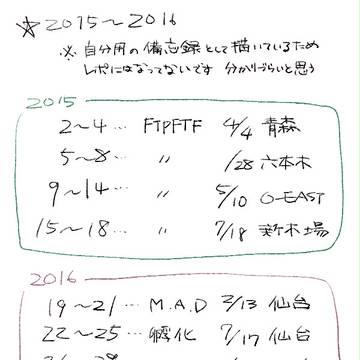 ☆ 2015～2016
※ 自分用の備忘録として描いているため
レポにはなってないです 分かりづらいと思う
2015
2～4… FTPFTF 4/4 青森
5～8… 〃 /28 六本木
9～14… 〃 5/10 O-EAST
15～18… 〃 7/18 新木場
2016
19～21… M.A.D 2/13 仙台
22～25… 孵化 7/17 仙台